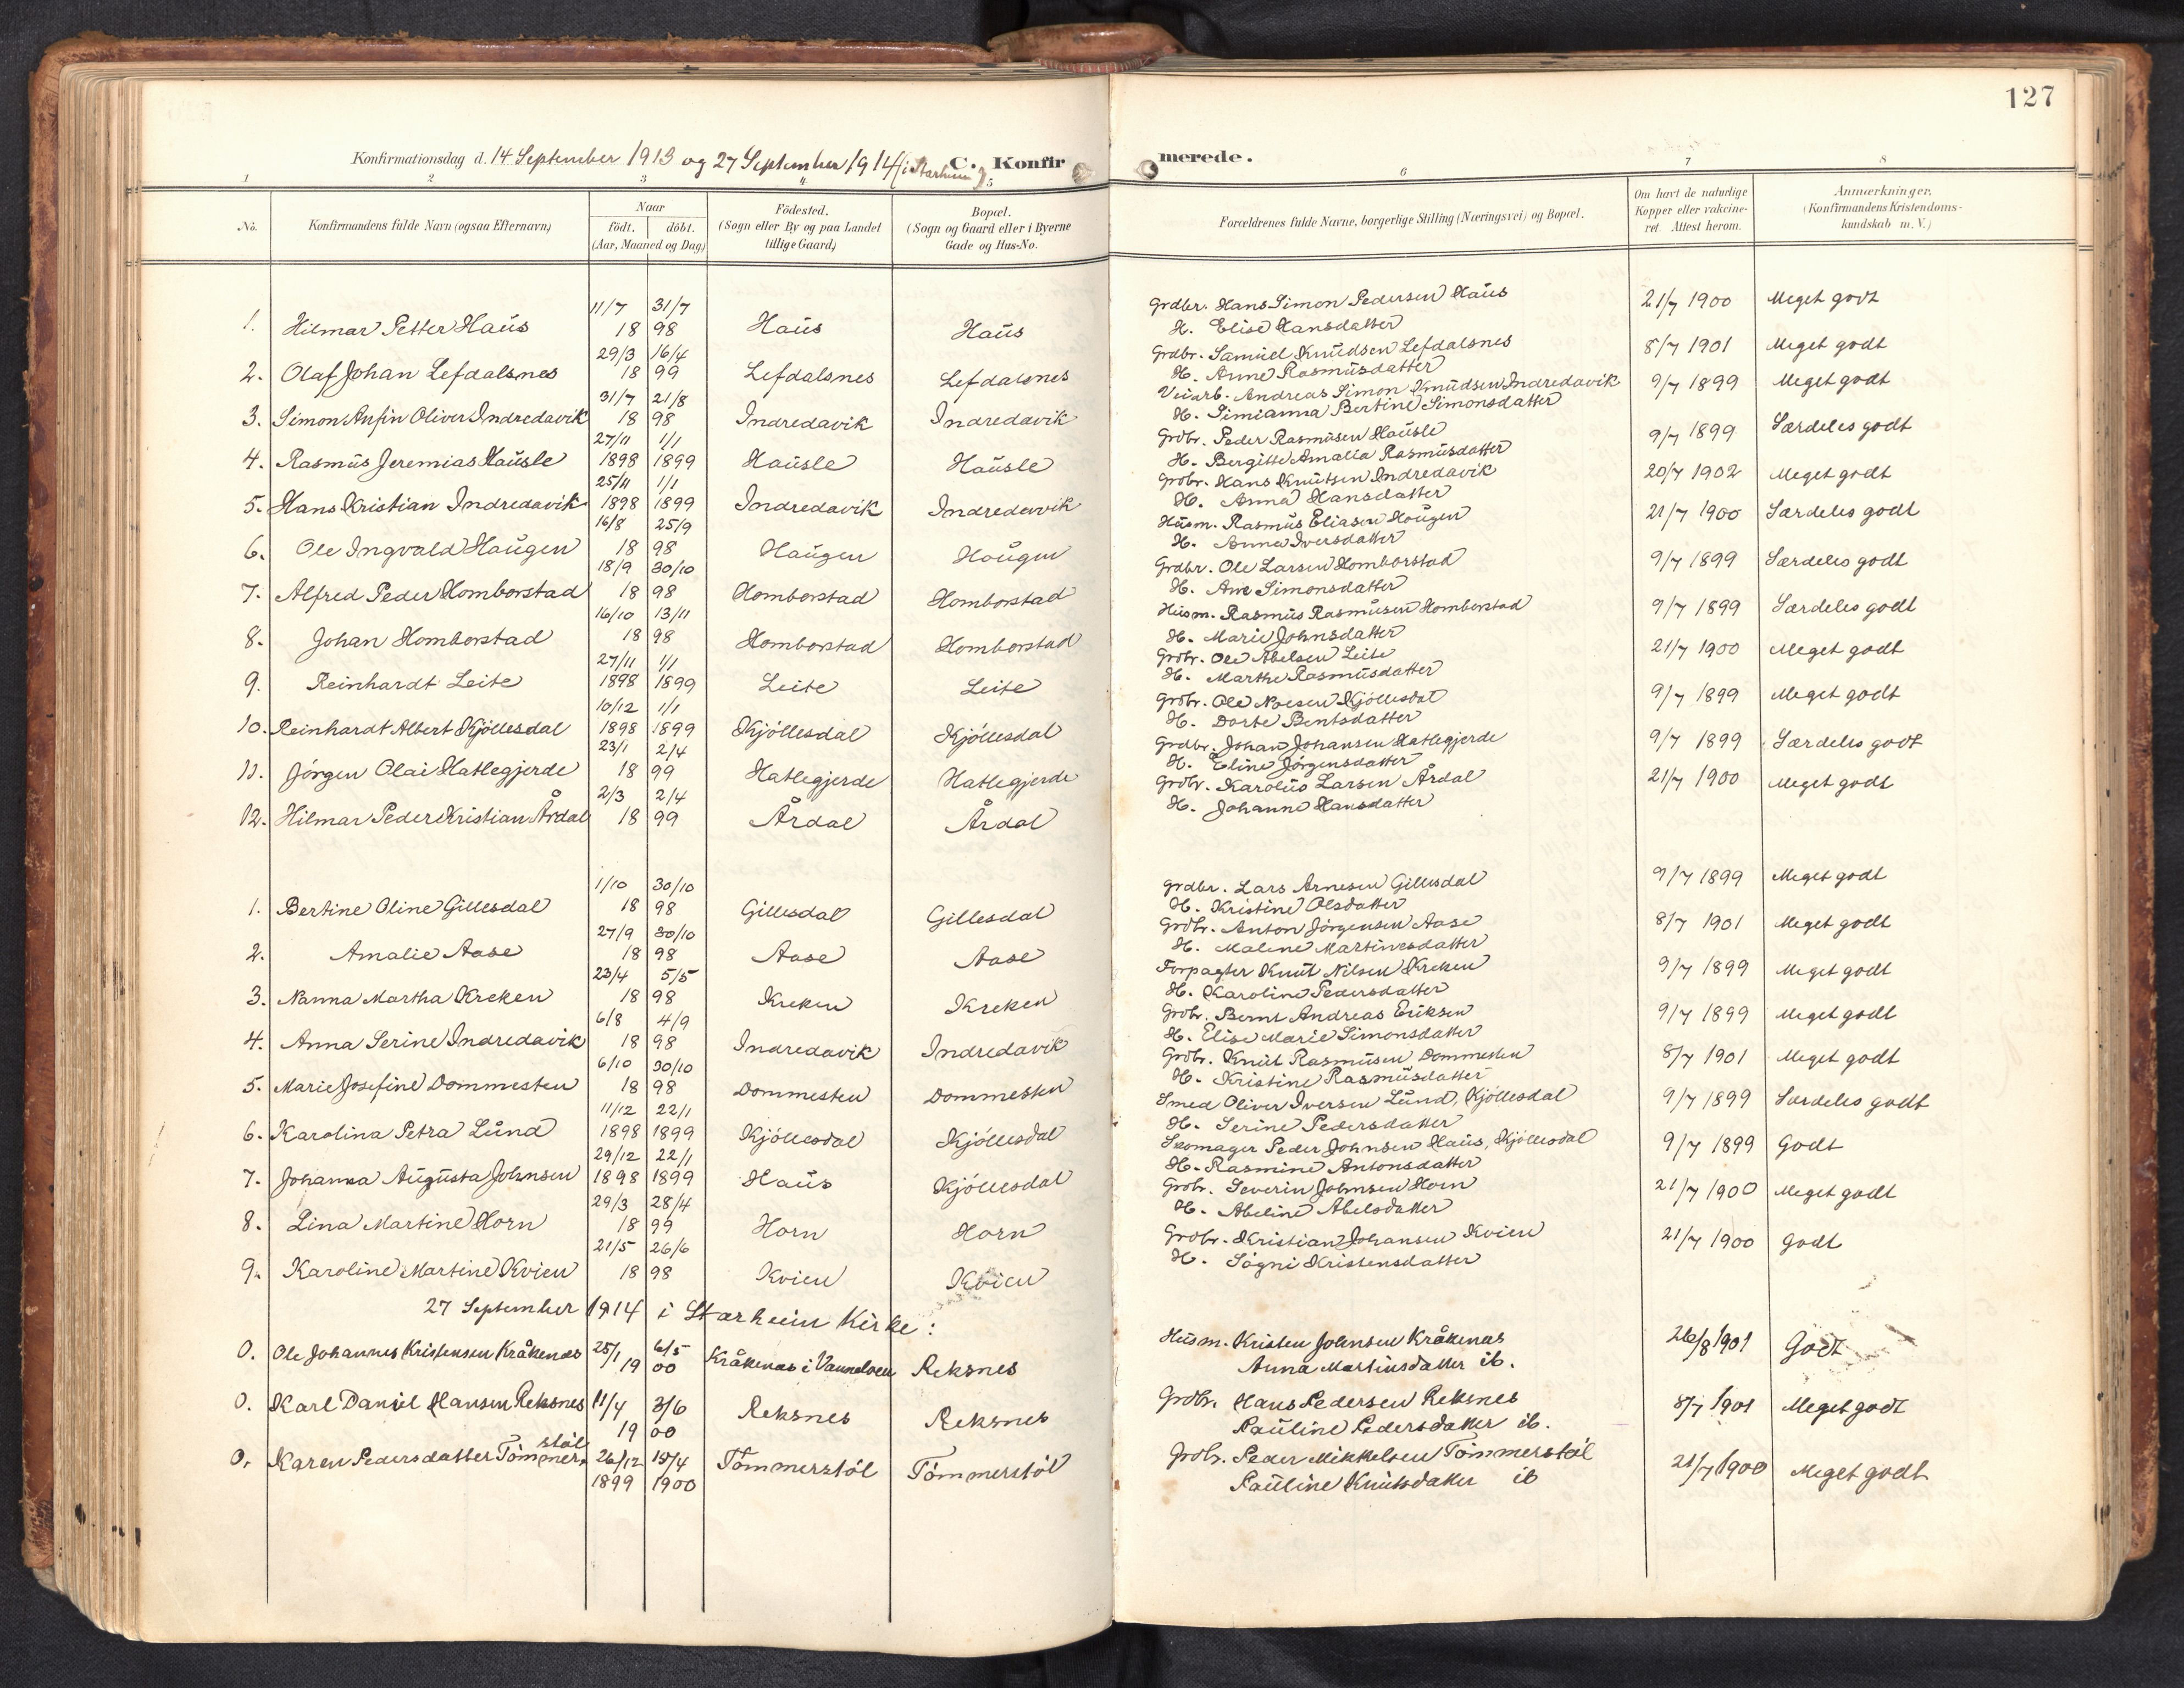 127
Konfirmationsdag d. 14 September 1913 og 27 September 1914 (i Starheim) C. Konfir merede.
1 2 3 4 5 6 7 8
No. Konfirmandens fulde Navn (ogsaa Efternavn) Naar födt. döbt. (Aar, Maaned og Dag) Födested. (Sogn eller By og paa Landet tillige Gaard) Bopæl. (Sogn og Gaard eller i Byerne Gade og Hus-No. Forældrenes fulde Navne, borgerlige Stilling (Næringsvei) og Bopæl. Om havt de naturlige Kopper eller vakcineret. Attest herom. Anmærkninger. (Konfirmandens Kristendomskundskab m. V.)
1. Hilmar Petter Haus 11/7 31/7 18 98 Haus Haus Grdbr. Hans Simon Pedersen Haus H. Elise Hansdatter 21/7 1900 Meget godt
2. Olaf Johan Lefdalsnes 29/3 16/4 18 99 Lefdalsnes Lefdalsnes Grdbr. Samuel Knudsen Lefdalsnes H. Anne Rasmusdatter 8/7 1901 Meget godt
3. Simon Anfin Oliver Indredavik 31/7 21/8 18 98 Indredavik Indredavik Veiarb. Andreas Simon Knudsen Indredavik H. Simianna Bertine Simonsdatter 9/7 1899 Meget godt
4. Rasmus Jeremias Hausle 27/11 1/1 1898 1899 Hausle Hausle Grdbr. Peder Rasmusen Hausle H. Bergitte Amalia Rasmusdatter 9/7 1899 Særdeles godt
5. Hans Kristian Indredavik 25/11 1/1 1898 1899 Indredavik Indredavik Grdbr. Hans Knutsen Indredavik H. Anna Hansdatter 20/7 1902 Meget godt
6. Ole Ingvald Haugen 16/8 25/9 18 98 Haugen Haugen Husm. Rasmus Eliasen Haugen H. Anna Iversdatter 21/7 1900 Særdeles godt
7. Alfred Peder Homborstad 18/9 30/10 18 98 Homborstad Homborstad Grdbr. Ole Larsen Homborstad H. Ane Simonsdatter 9/7 1899 Særdeles godt
8. Johan Homborstad 16/10 13/11 18 98 Homborstad Homborstad Husm. Rasmus Rasmusen Homborstad H. Marie Johnsdatter 9/7 1899 Særdeles godt
9. Reinhardt Leite 27/11 1/1 1898 1899 Leite Leite Grdbr. Ole Abelsen Leite H. Marthe Rasmusdatter 21/7 1900 Meget godt
10. Reinhardt Albert Kjöllesdal 10/12 1/1 1898 1899 Kjöllesdal Kjöllesdal Grdbr. Ole Kjöllesdal H. Dorte Bentsdatter 9/7 1899 Meget godt
11. Jörgen Olai Hatlegjerde 23/1 2/4 18 99 Hatlegjerde Hatlegjerde Grdbr. Johan Johansen Hatlegjerde H. Eline Jörgensdatter 9/7 1899 Særdeles godt
12. Hilmar Peder Kristian Årdal 2/3 2/4 18 99 Årdal Årdal Grdbr. Karolus Larsen Årdal H. Johanne Hansdatter 21/7 1900 Meget godt
1. Bertine Oline Gillesdal 1/10 30/10 18 98 Gillesdal Gillesdal Grdbr. Lars Arnesen Gillesdal H. Kristine Olsdatter 9/7 1899 Meget godt
2. Amalie Aase 27/9 30/10 18 98 Aase Aase Grdbr. Anton Jörgensen Aase H. Malene Martinesdatter 8/7 1901 Meget godt
3. Nanna Martha Kreken 23/4 5/5 18 98 Kreken Kreken Forpagter Knut Nilsen Kreken H. Karoline Pedersdatter 9/7 1899 Meget godt
4. Anna Serine Indredavik 6/8 4/9 18 98 Indredavik Indredavik Grdbr. Bernt Andreas Eriksen H. Elise Marie Simonsdatter 9/7 1899 Meget godt
5. Marie Josefine Dommesten 6/10 30/10 18 98 Dommesten Dommesten Grdbr. Knut Rasmusen Dommesten H. Kristine Rasmusdatter 8/7 1901 Meget godt
6. Karolina Petra Lund 11/12 22/1 1898 1899 Kjöllesdal Kjöllesdal Smed Oliver Iversen Lund, Kjöllesdal H. Serine Pedersdatter 9/7 1899 Særdeles godt
7. Johanna Augusta Johnsen 29/12 22/1 1898 1899 Haus Kjöllesdal Skomager Peder Johnsen Haus, Kjöllesdal H. Rasmine Antonsdatter 9/7 1899 Godt
8. Lina Martine Horn 29/3 28/4 18 99 Horn Horn Grdbr. Severin Johnsen Horn H. Abeline Abelsdatter 21/7 1900 Meget godt
9. Karoline Martine Kvien 21/5 26/6 18 98 Kvien Kvien Grdbr. Kristian Johansen Kvien H. Sögni Kristensdatter 21/7 1900 Godt
27 September 1914 i Starheim Kirke:
0. Ole Johannes Kristensen Kråkenes 25/1 6/5 19 00 Kråkenes i Vannelven Reksnes Husm. Kristen Johnsen Kråkenes Anna Martinsdatter ib. 26/8 1901 Godt
0. Karl Daniel Hansen Reksnes 11/4 3/6 19 00 Reksnes Reksnes Grdbr. Hans Pedersen Reksnes Pauline Pedersdatter ib. 8/7 1901 Meget godt
0. Karen Pedersdatter Tömmerstöl 26/12 15/4 1899 1900 Tömmerstöl Tömmerstöl Grdbr. Peder Mikkelsen Tömmerstöl Pauline Knutsdatter ib 21/7 1900 Meget godt